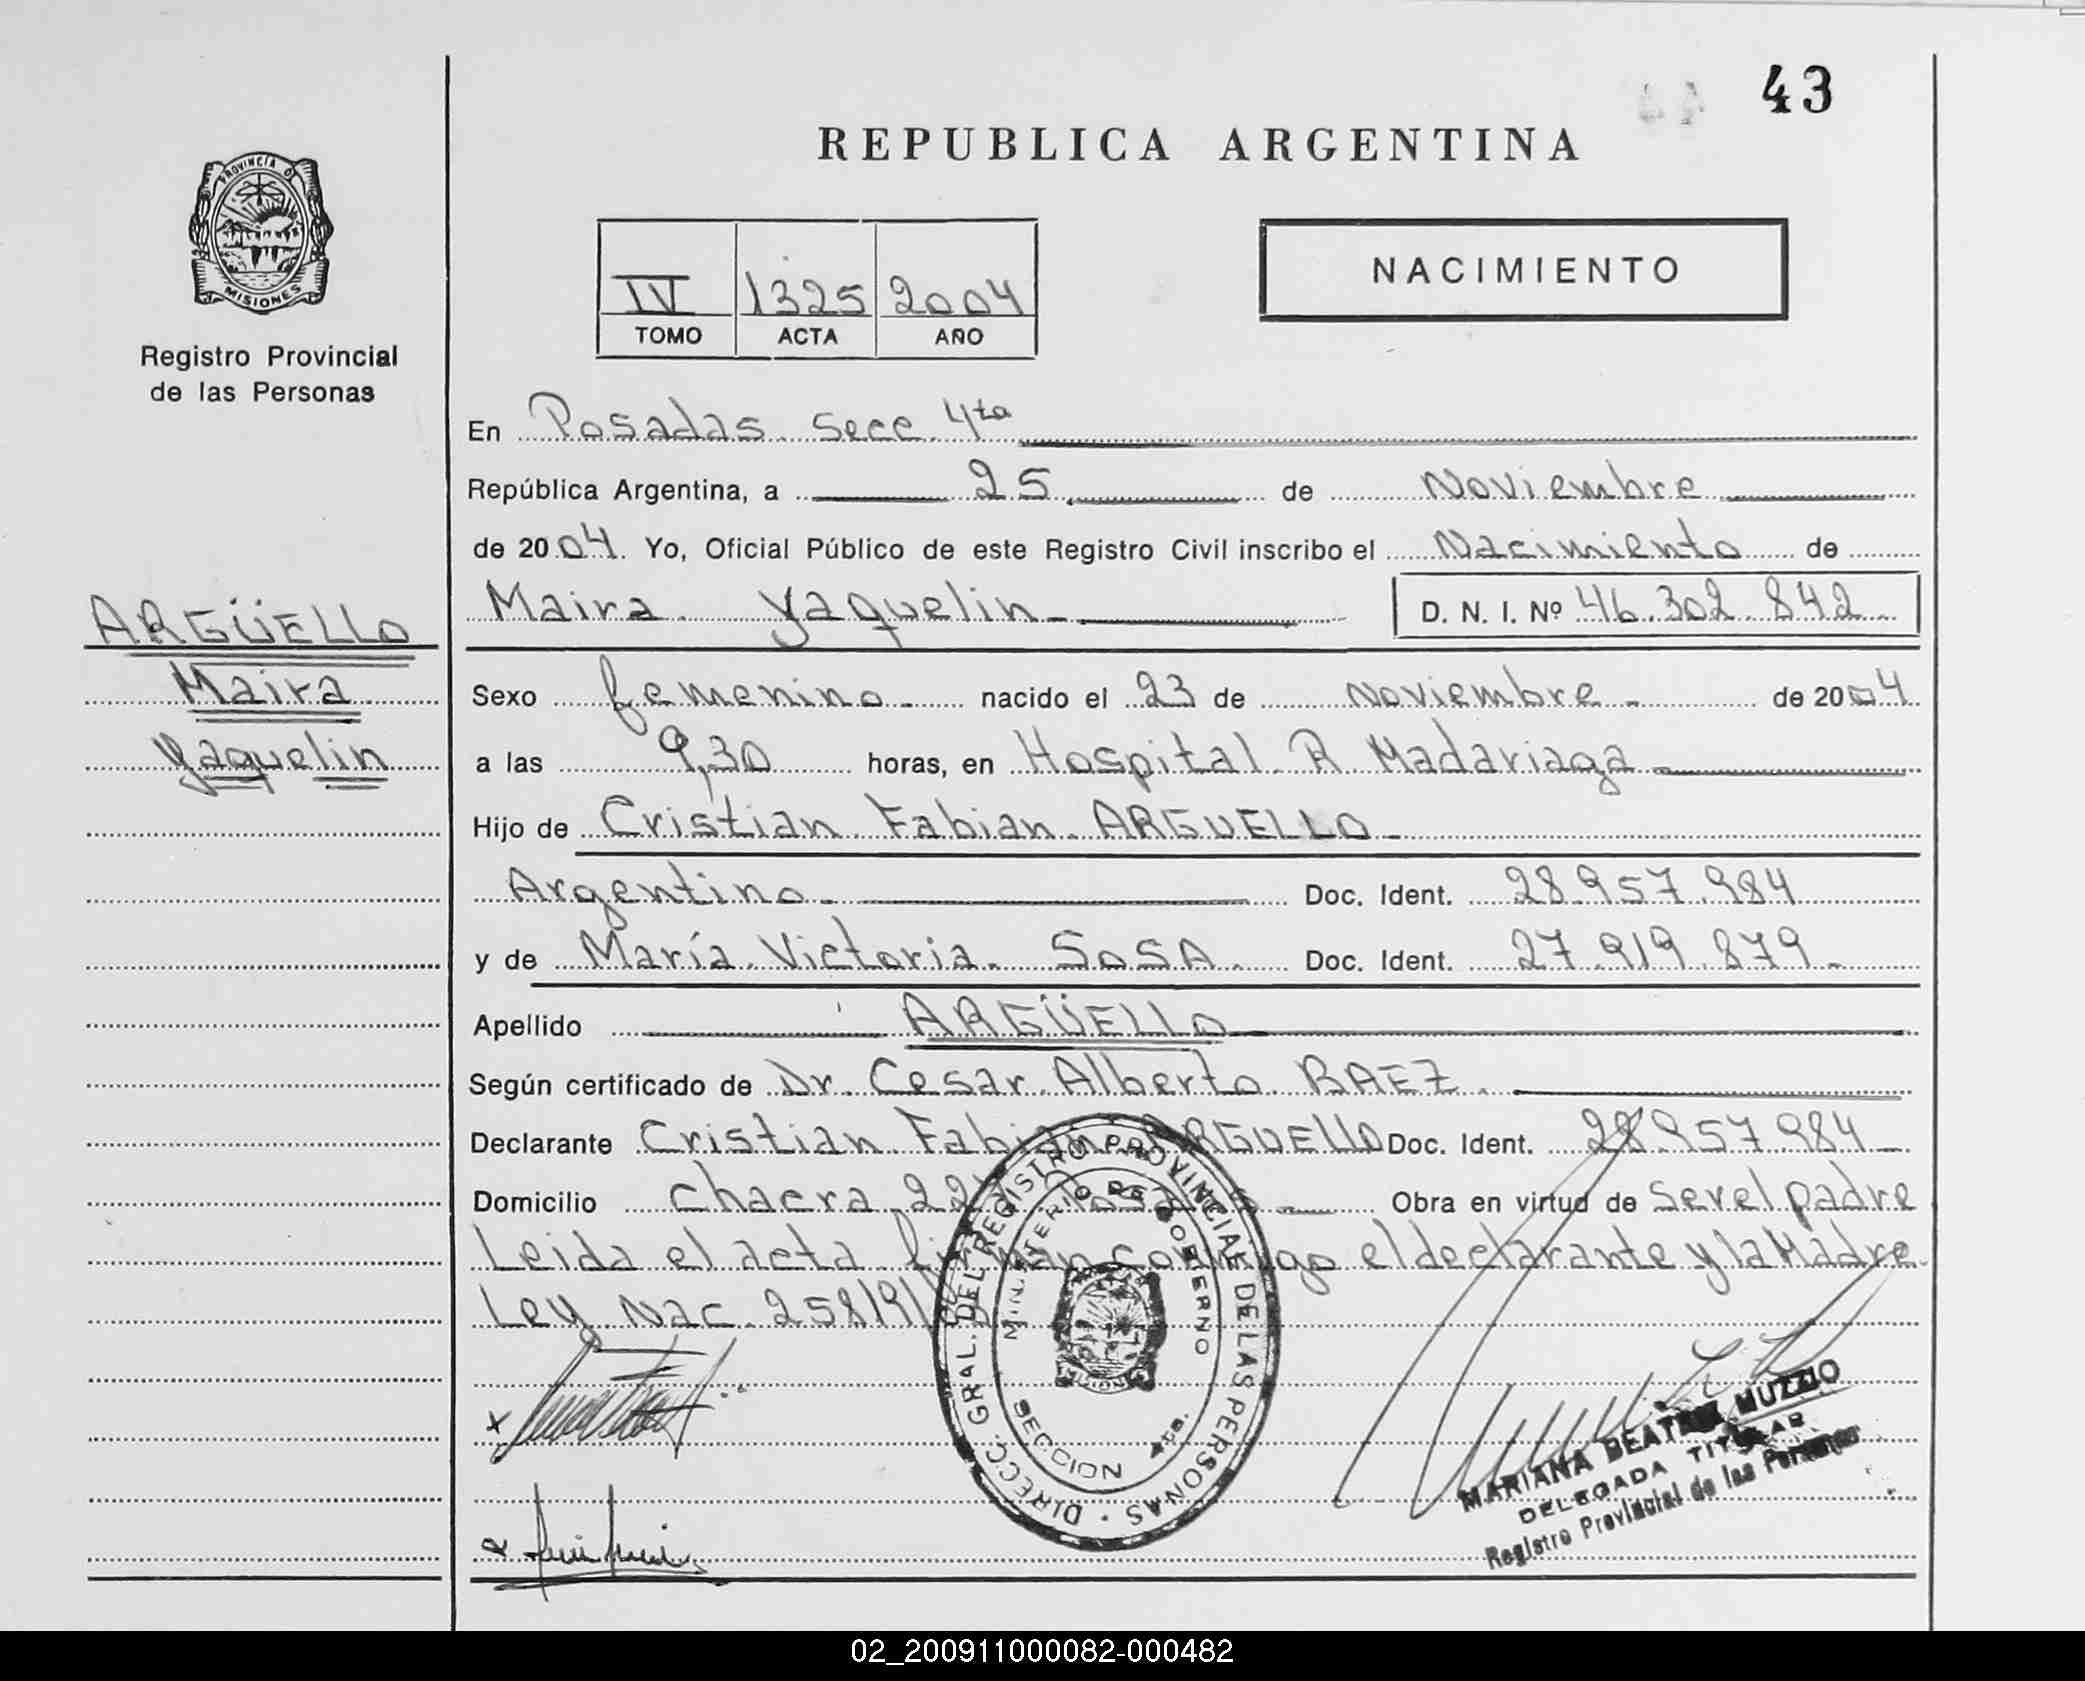 43
REPUBLICA ARGENTINA
PROVINCIA D
MISIONES
Registro Provincial
de las Personas
IV 1325 2004
TOMO ACTA AÑO
NACIMIENTO
En Posadas Secc. 4ta
República Argentina, a 25 de Noviembre
de 2004. Yo, Oficial Público de este Registro Civil inscribo el Nacimiento de
Maira Yaquelin D. N. I. Nº 46.302.842
ARGÜELLO
Maira
Yaquelin
Sexo femenino nacido el 23 de Noviembre de 2004
a las 9,30 horas, en Hospital R. Madariaga
Hijo de Cristian Fabian ARGUELLO
Argentino. Doc. Ident. 28.957.984
y de María Victoria SOSA. Doc. Ident. 27.919.879.
Apellido ARGÜELLO
Según certificado de Dr. Cesar Alberto BAEZ.
Declarante Cristian Fabian ARGUELLO Doc. Ident. 28.957.984
Domicilio Chacra Obra en virtud de ser el padre
Leida el acta firman conmigo el declarante y la Madre.
Ley Nac.
DIRECC. GRAL. DEL REGISTRO PROVINCIAL DE LAS PERSONAS
MINISTERIO DE GOBIERNO
SECCION 4ta.
MARIANA BEATRIZ MUZZIO
DELEGADA TITULAR
Registro Provincial de las Personas
02_200911000082-000482